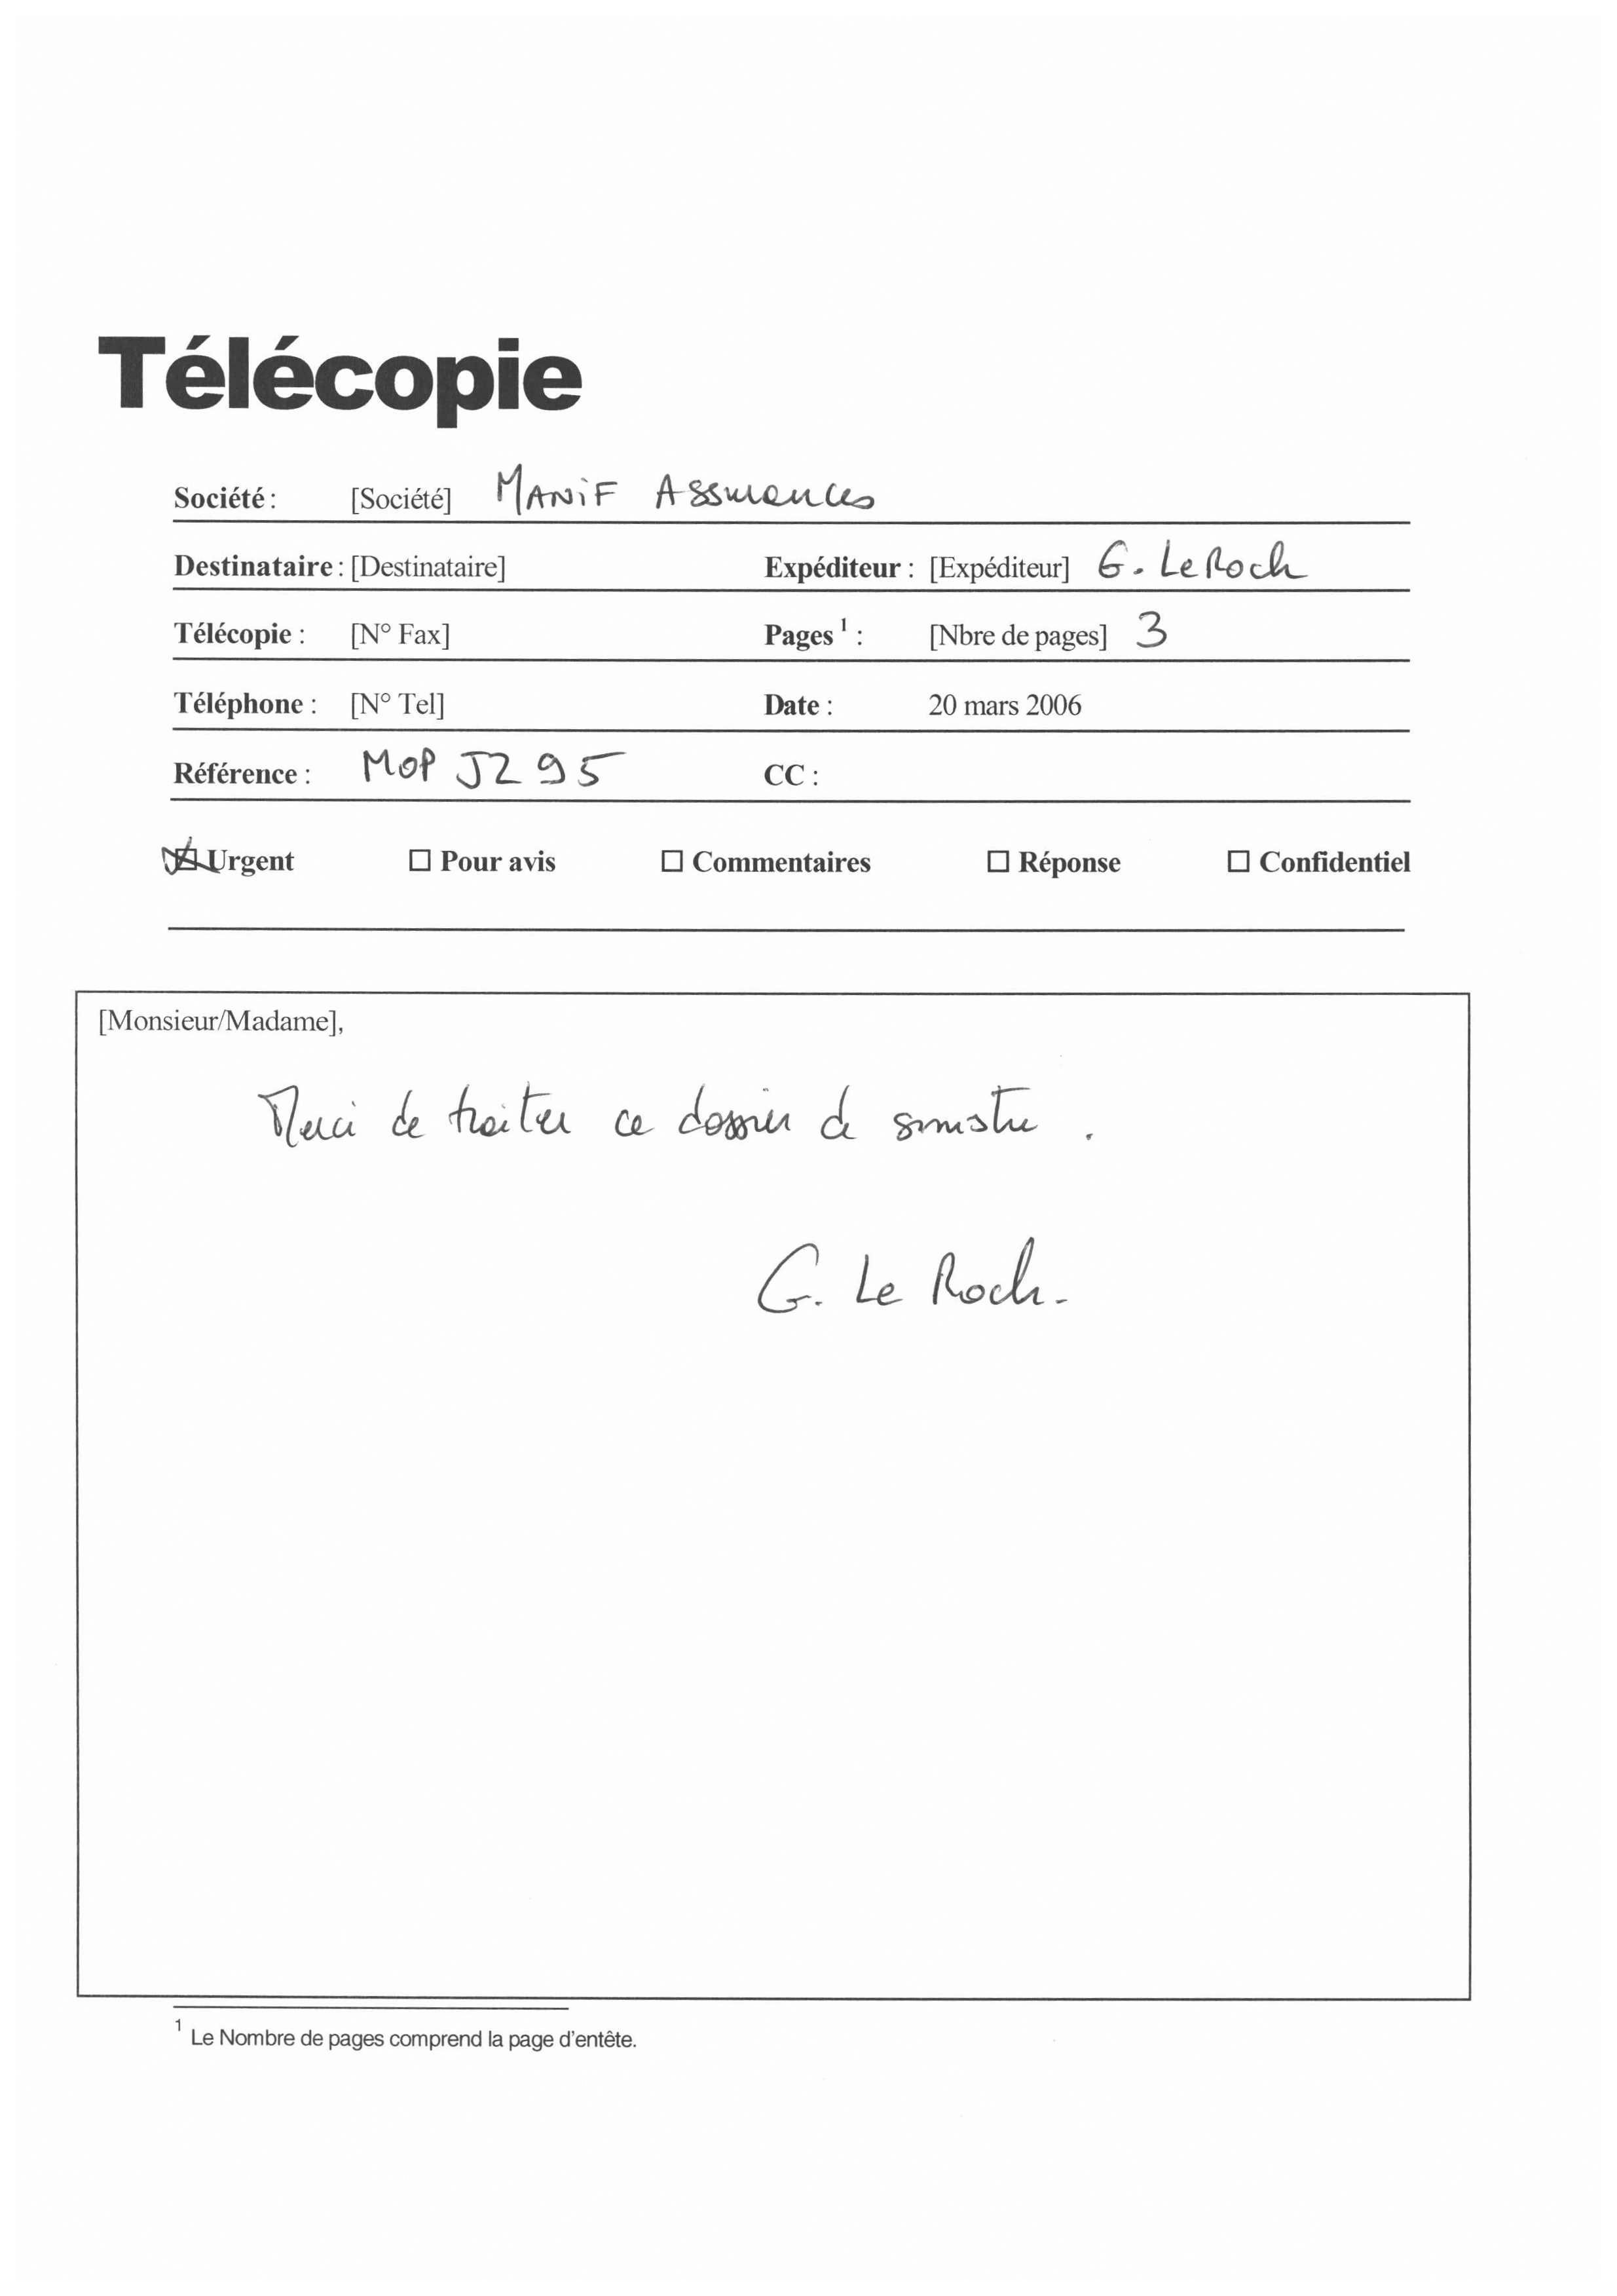 Télécopie
Société : [Société] MANiF Assurances
Destinataire : [Destinataire] Expéditeur : [Expéditeur] G. Le Roch
Télécopie : [N° Fax] Pages 1 : [Nbre de pages] 3
Téléphone : [N° Tel] Date : 20 mars 2006
Référence : MOP JZ 95 CC :
☒ Urgent ☐ Pour avis ☐ Commentaires ☐ Réponse ☐ Confidentiel
[Monsieur/Madame],
Merci de traiter ce dossier de sinistre .
G. Le Roch.
1 Le Nombre de pages comprend la page d'entête.